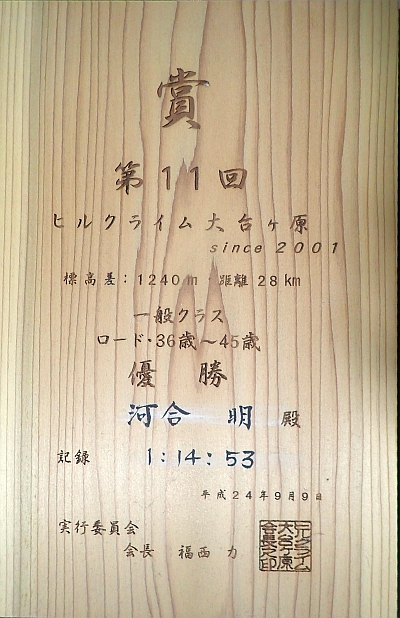 賞
第11回
ヒルクライム大台ヶ原
since 2001
標高差:1240m 距離28km
一般クラス
ロード・36歳～45歳
優勝
河合 明 殿
記録 1:14:53
平成24年9月9日
実行委員会
会長 福西 力
ヒルクライム
大台ヶ原
会長之印